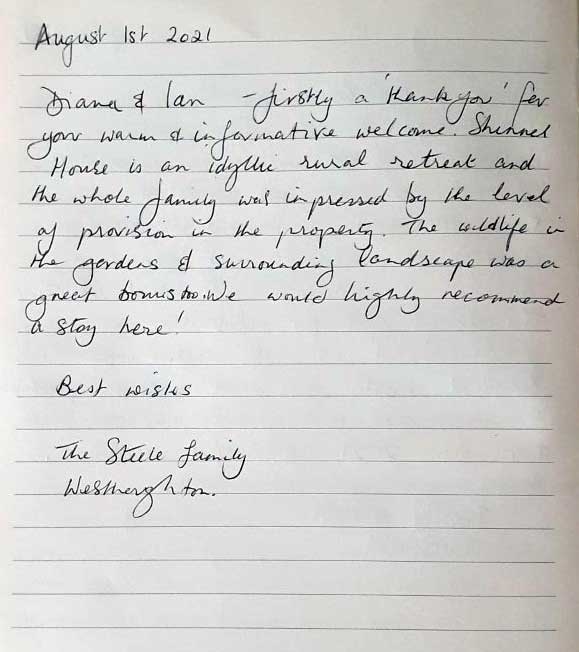 August 1st 2021
Diana & Ian - firstly a 'thank you' for
your warm & informative welcome. Shinnel
House is an idyllic rural retreat and
the whole family was impressed by the level
of provision in the property. The wildlife in
the gardens & surrounding landscape was a
great bonus too. We would highly recommend
a stay here!
Best wishes
The Steele family